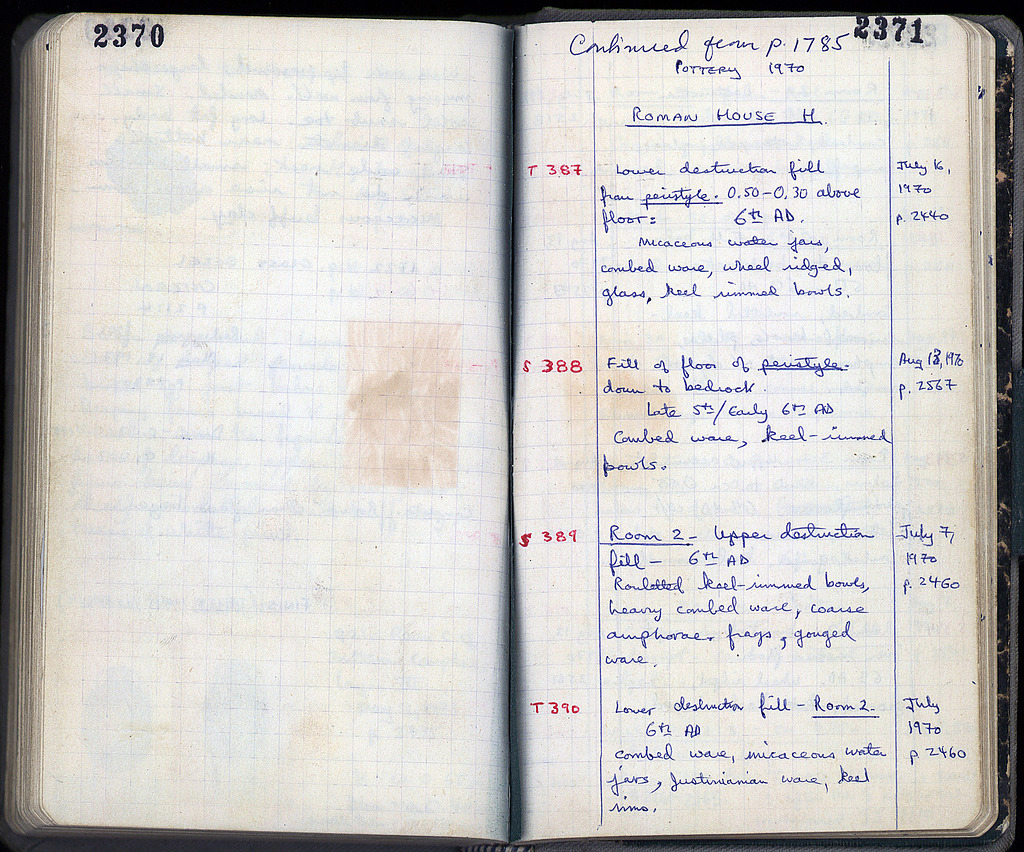 2370
2371
Continued from p. 1785
POTTERY 1970
ROMAN HOUSE H.
T 387 Lower destruction fill July 16,
from peristyle. 0.50-0.30 above 1970
floor: 6th AD. p. 2440
Micaceous water jars,
combed ware, wheel ridged,
glass, keel rimmed bowls.
S 388 Fill of floor of peristyle. Aug 1970
down to bedrock. p. 2567
Late 5th/Early 6th AD
Combed ware, keel-rimmed
bowls.
S 389 Room 2 - Upper destruction July 7,
fill - 6th AD 1970
Rouletted keel-rimmed bowls, p. 2460
heavy combed ware, coarse
amphorae. frags, gouged
ware.
T 390 Lower destruction fill - Room 2. July
6th AD 1970
combed ware, micaceous water p 2460
jars, Justinianian ware, keel
rims.